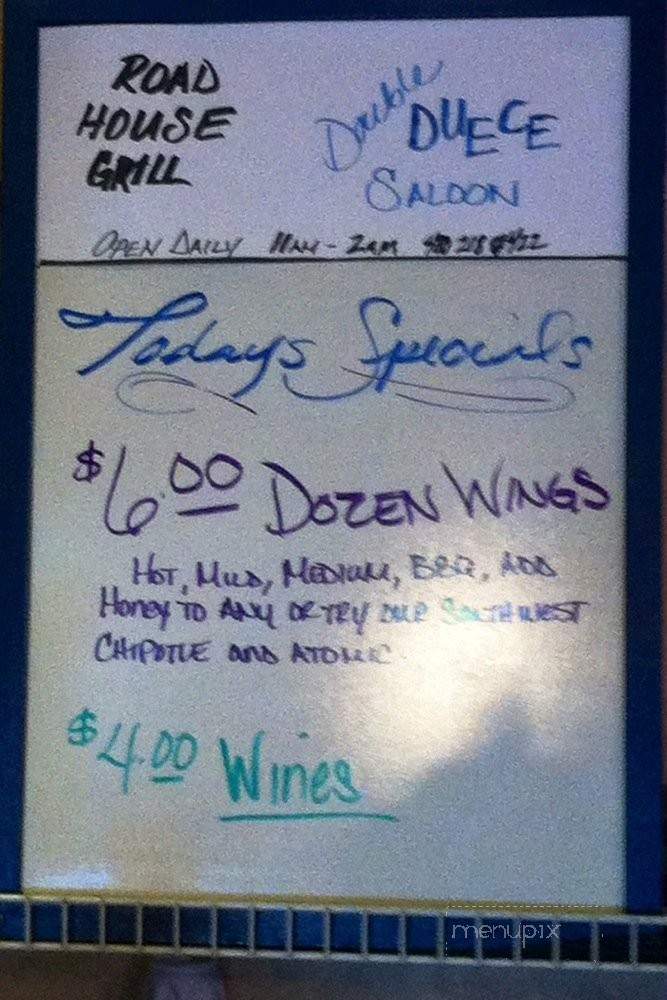 ROAD
HOUSE
GRILL
Double DUECE
SALOON
OPEN DAILY 11AM - 2AM
Todays Specials
$6.00 DOZEN WINGS
HOT, MILD, MEDIUM, BBQ, ADD
Honey TO ANY OR TRY OUR SOUTHWEST
CHIPOTLE AND ATOMIC
$4.00 Wines
menupix